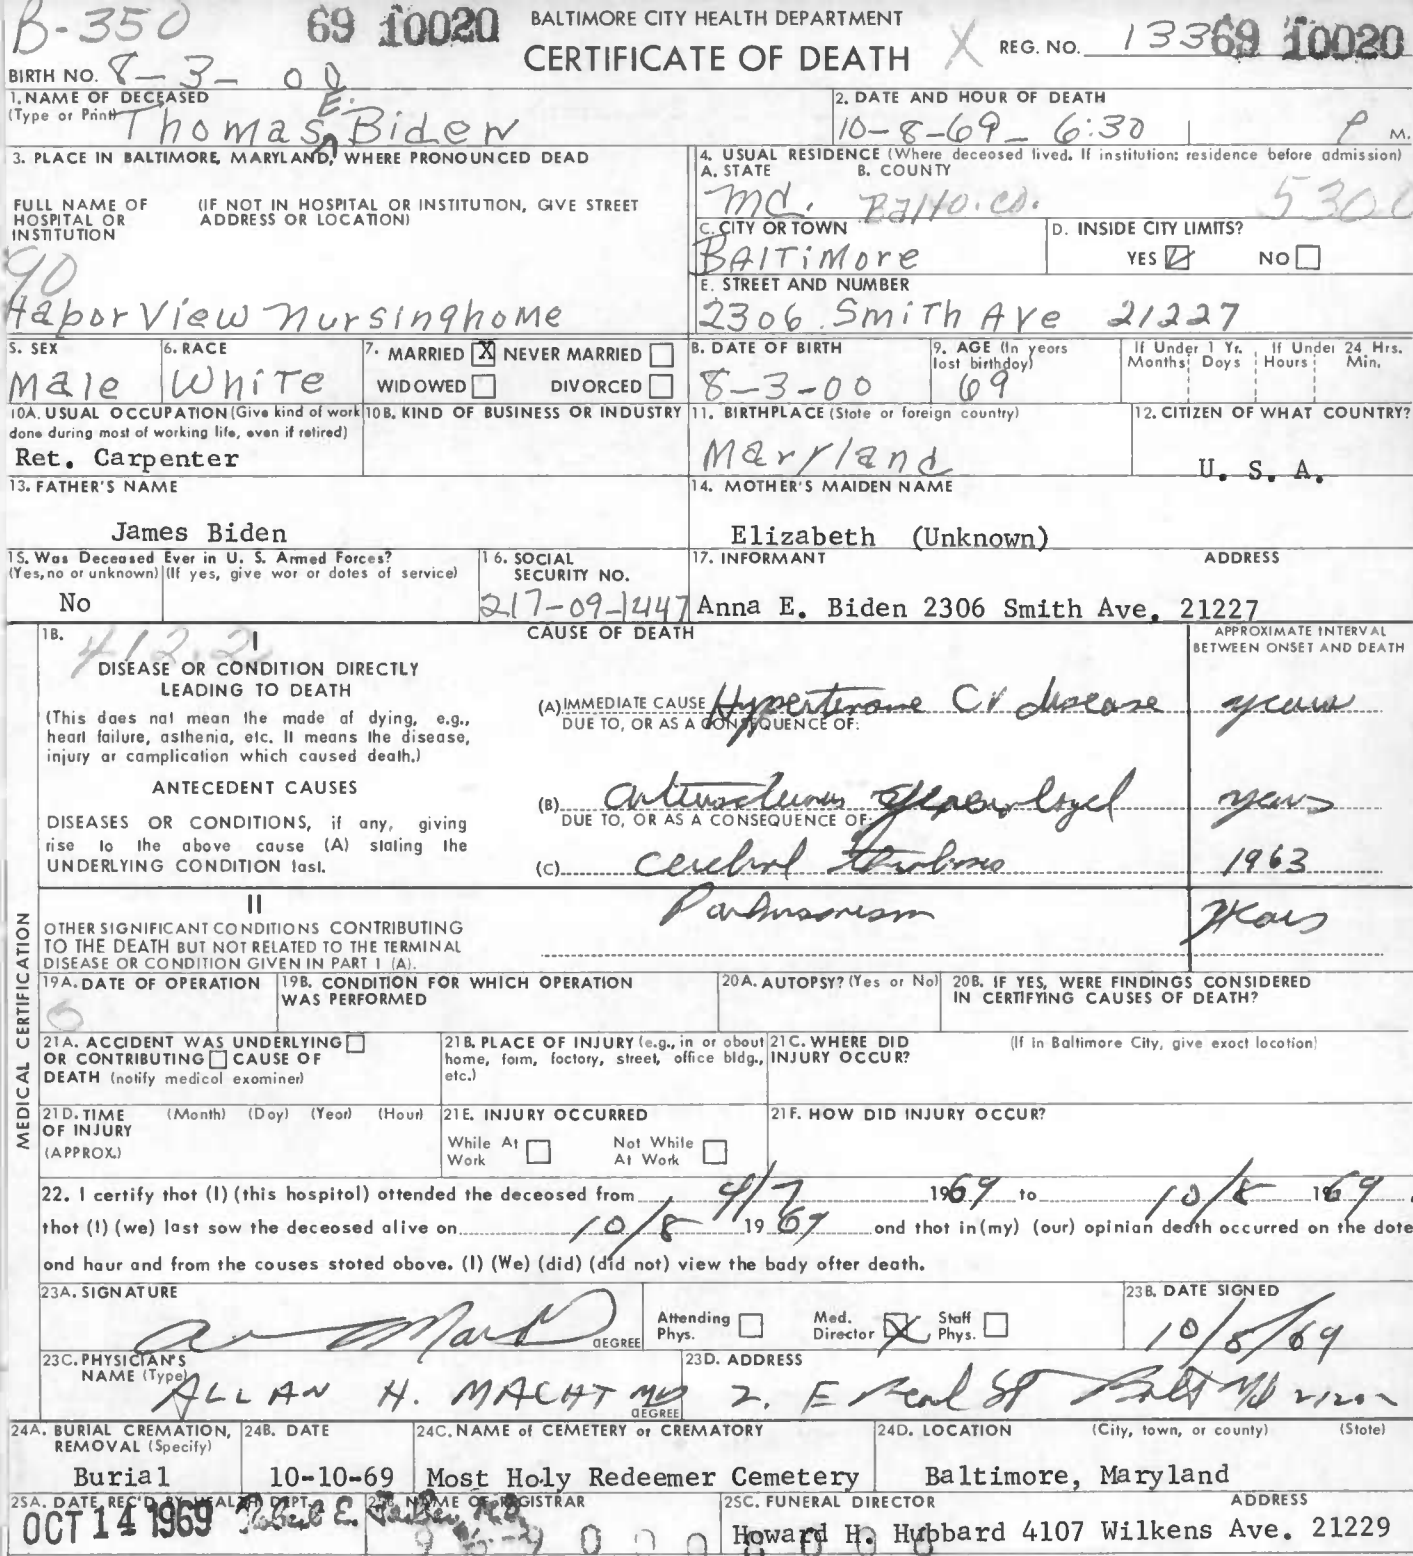 B-350 69 10020 BALTIMORE CITY HEALTH DEPARTMENT
CERTIFICATE OF DEATH X REG. NO. 133 69 10020
BIRTH NO. 8-3-00
1. NAME OF DECEASED
(Type or Print) Thomas E. Biden
2. DATE AND HOUR OF DEATH
10-8-69- 6:30 P M.
3. PLACE IN BALTIMORE, MARYLAND, WHERE PRONOUNCED DEAD
FULL NAME OF HOSPITAL OR INSTITUTION
(IF NOT IN HOSPITAL OR INSTITUTION, GIVE STREET ADDRESS OR LOCATION)
90
Habor View Nursinghome
4. USUAL RESIDENCE (Where deceosed lived. If institution: residence before admission)
A. STATE B. COUNTY
Md. Balto. Co. 5300
C. CITY OR TOWN
BALTiMore
D. INSIDE CITY LIMITS?
YES NO
E. STREET AND NUMBER
2306 Smith Ave 21227
5. SEX
Male
6. RACE
White
7. MARRIED X NEVER MARRIED
WIDOWED DIVORCED
8. DATE OF BIRTH
8-3-00
9. AGE (In yeors lost birthdoy)
69
If Under 1 Yr. Months Doys
If Under 24 Hrs. Hours Min.
10A. USUAL OCCUPATION (Give kind of work done during most of working life, even if retired)
Ret. Carpenter
10B. KIND OF BUSINESS OR INDUSTRY
11. BIRTHPLACE (Stote or foreign country)
Maryland
12. CITIZEN OF WHAT COUNTRY?
U. S. A.
13. FATHER'S NAME
James Biden
14. MOTHER'S MAIDEN NAME
Elizabeth (Unknown)
15. Was Deceased Ever in U. S. Armed Forces?
(Yes, no or unknown) (If yes, give wor or dotes of service)
No
16. SOCIAL SECURITY NO.
217-09-1447
17. INFORMANT ADDRESS
Anna E. Biden 2306 Smith Ave. 21227
MEDICAL CERTIFICATION
18. 412.2 CAUSE OF DEATH
APPROXIMATE INTERVAL BETWEEN ONSET AND DEATH
I
DISEASE OR CONDITION DIRECTLY
LEADING TO DEATH
(This does not mean the mode of dying, e.g.,
heart failure, asthenia, etc. It means the disease,
injury or complication which caused death.)
(A) IMMEDIATE CAUSE Hypertensive CV disease years
DUE TO, OR AS A CONSEQUENCE OF:
ANTECEDENT CAUSES
DISEASES OR CONDITIONS, if any, giving
rise to the above cause (A) stating the
UNDERLYING CONDITION last.
(B) arteriosclerosis generalized years
DUE TO, OR AS A CONSEQUENCE OF:
(C) cerebral thrombosis 1963
II
OTHER SIGNIFICANT CONDITIONS CONTRIBUTING
TO THE DEATH BUT NOT RELATED TO THE TERMINAL
DISEASE OR CONDITION GIVEN IN PART 1 (A).
Parkinsonism years
19A. DATE OF OPERATION
19B. CONDITION FOR WHICH OPERATION WAS PERFORMED
20A. AUTOPSY? (Yes or No)
20B. IF YES, WERE FINDINGS CONSIDERED IN CERTIFYING CAUSES OF DEATH?
21A. ACCIDENT WAS UNDERLYING
OR CONTRIBUTING CAUSE OF
DEATH (notify medicol exominer)
21B. PLACE OF INJURY (e.g., in or obout home, form, foctory, street, office bldg., etc.)
21C. WHERE DID INJURY OCCUR?
(If in Boltimore City, give exoct locotion)
21D. TIME OF INJURY (APPROX.)
(Month) (Doy) (Yeor) (Hour)
21E. INJURY OCCURRED
While At Work Not While At Work
21F. HOW DID INJURY OCCUR?
22. I certify thot (I) (this hospitol) ottended the deceosed from 4/7 1969 to 10/8 1969,
thot (I) (we) lost sow the deceosed olive on 10/8 1969 ond thot in (my) (our) opinion deoth occurred on the dote
ond hour ond from the couses stoted obove. (I) (We) (did) (did not) view the body ofter deoth.
23A. SIGNATURE
DEGREE
Attending Phys. Med. Director X Stoff Phys.
23B. DATE SIGNED
10/8/69
23C. PHYSICIAN'S NAME (Type)
ALLAN H. MACHT MD
DEGREE
23D. ADDRESS
2. E Read St Balt Md 21202
24A. BURIAL CREMATION, REMOVAL (Specify)
Burial
24B. DATE
10-10-69
24C. NAME of CEMETERY or CREMATORY
Most Holy Redeemer Cemetery
24D. LOCATION (City, town, or county) (Stote)
Baltimore, Maryland
25A. DATE REC'D BY HEALTH DEPT.
OCT 14 1969
25B. NAME OF REGISTRAR
Robert E. Farber, M.D.
25C. FUNERAL DIRECTOR ADDRESS
Howard H. Hubbard 4107 Wilkens Ave. 21229